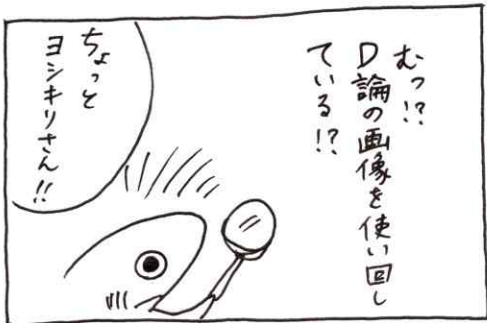 むっ!?
D論の画像を使い回し
ている!?
ちょっと
ヨシキリさん!!